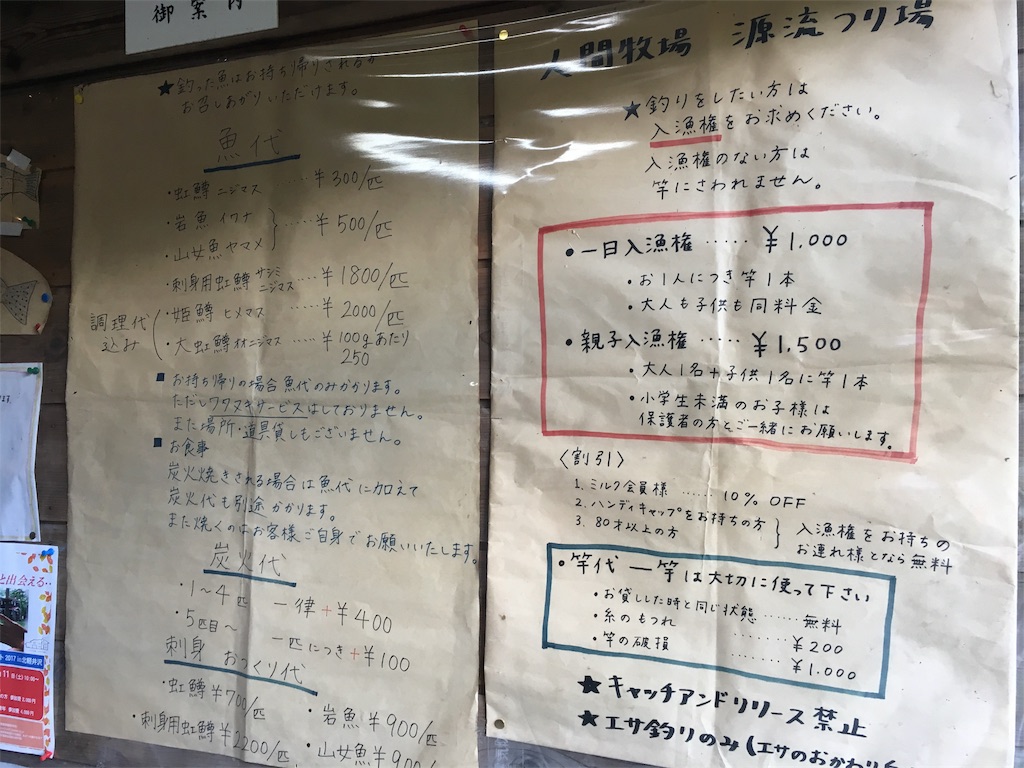 御案内
★釣った魚はお持ち帰りされるか
お召しあがりいただけます。
魚代
・虹鱒 ニジマス ‥‥ ¥300/匹
・岩魚 イワナ
・山女魚 ヤマメ } ‥‥ ¥500/匹
・刺身用虹鱒 サシミニジマス ‥‥ ¥1800/匹
調理代込み
・姫鱒 ヒメマス ‥‥ ¥2000/匹
・大虹鱒 オオニジマス ‥‥ ¥100gあたり
250
■ お持ち帰りの場合魚代のみかかります。
ただしワタヌキサービスはしておりません。
また場所・道具貸しもございません。
■ お食事
炭火焼きされる場合は魚代に加えて
炭火代も別途かかります。
また焼くのはお客様ご自身でお願いいたします。
炭火代
・1〜4匹 一律+¥400
・5匹目〜 一匹につき+¥100
刺身 おつくり代
・虹鱒 ¥700/匹
・岩魚 ¥900/匹
・刺身用虹鱒 ¥2200/匹
・山女魚 ¥900/
人間牧場 源流つり場
★釣りをしたい方は
入漁権をお求めください。
入漁権のない方は
竿にさわれません。
・一日入漁権 ‥‥‥ ¥1.000
・お1人につき竿1本
・大人も子供も同料金
・親子入漁権 ‥‥‥ ¥1,500
・大人1名+子供1名に竿1本
・小学生未満のお子様は
保護者の方とご一緒にお願いします。
〈割引〉
1. ミルク会員様 ‥‥‥ 10% OFF
2. ハンディキャップをお持ちの方
3. 80才以上の方
} 入漁権をお持ちの
お連れ様となら無料
・竿代 ― 竿は大切に使って下さい
・お貸しした時と同じ状態 ‥‥‥ 無料
・糸のもつれ ‥‥‥ ¥200
・竿の破損 ‥‥‥ ¥1.000
★キャッチアンドリリース禁止
★エサ釣りのみ(エサのおかわり
と出会える‥
2017 in北軽井沢